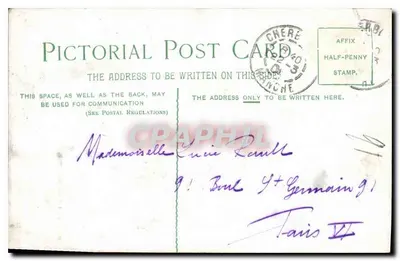 PICTORIAL POST CARD
THE ADDRESS TO BE WRITTEN ON THIS SIDE
THIS SPACE, AS WELL AS THE BACK, MAY
BE USED FOR COMMUNICATION
(SEE POSTAL REGULATIONS)
THE ADDRESS ONLY TO BE WRITTEN HERE.
AFFIX
HALF-PENNY
STAMP.
Mademoiselle Lucie
91 Boul St Germain 91
Paris VI